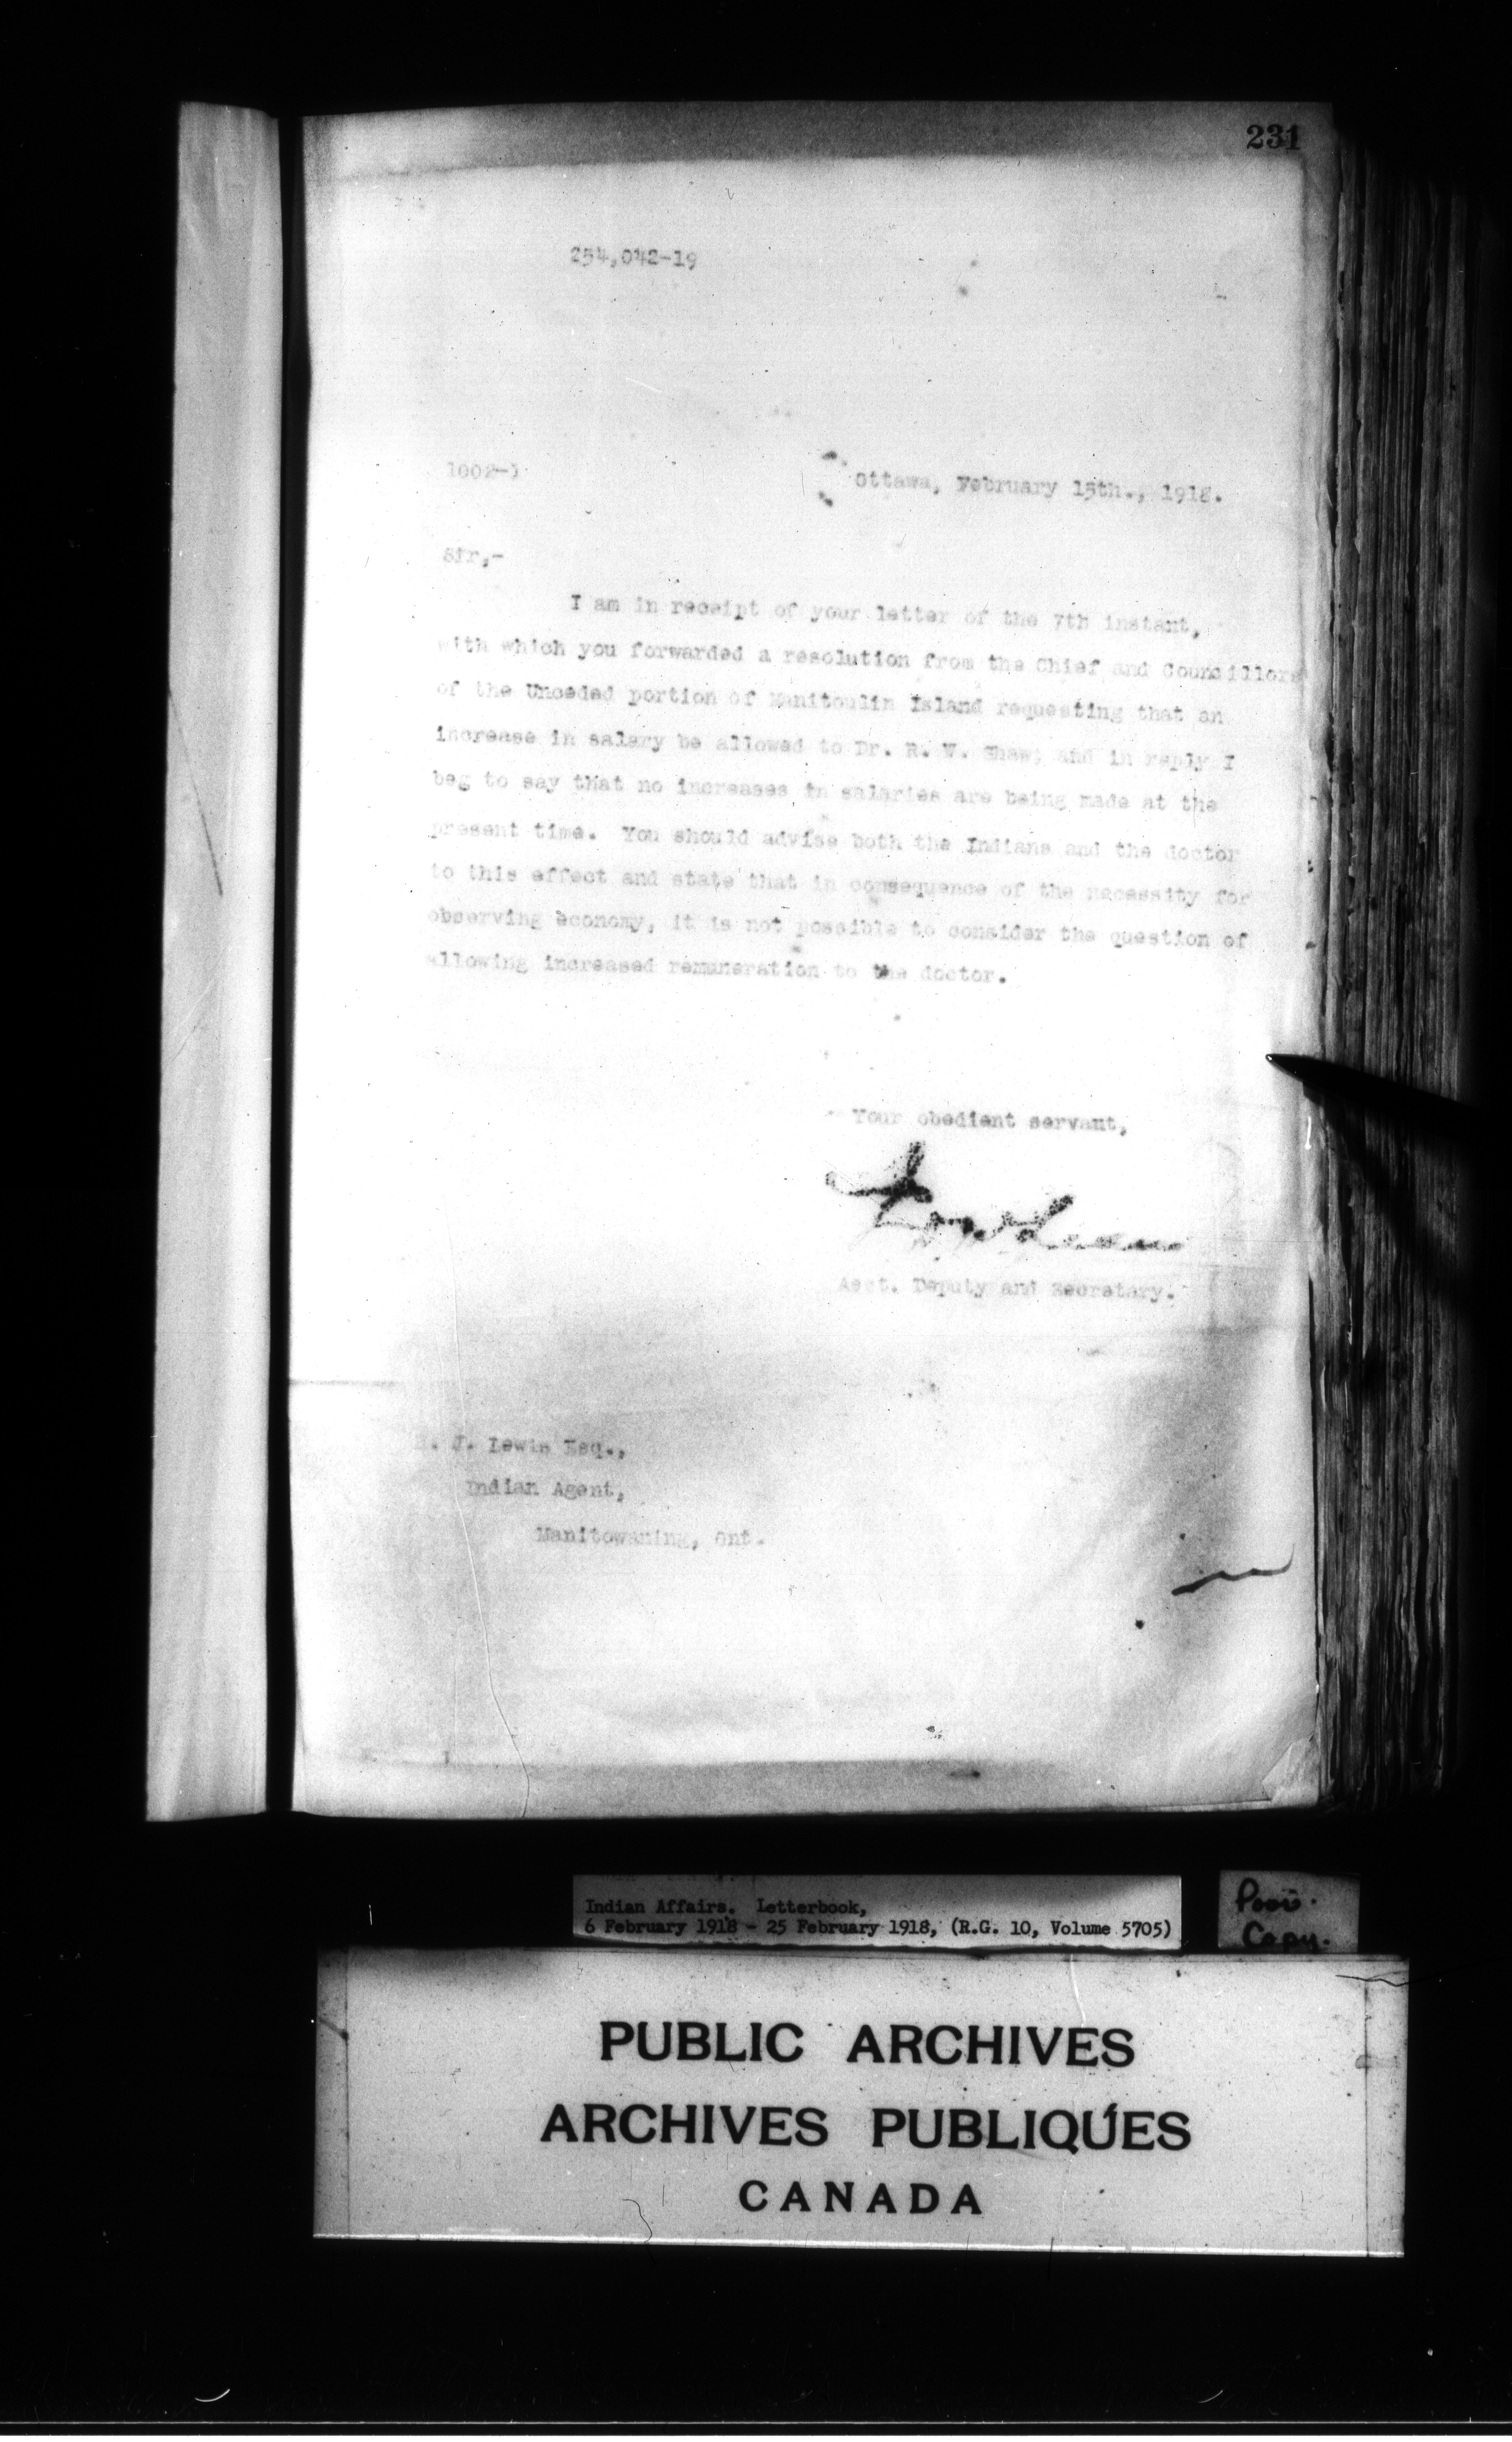 231
254,042-19
1002-1
Ottawa, February 15th., 1918.
Sir,-
I am in receipt of your letter of the 7th instant,
with which you forwarded a resolution from the Chief and Councillors
of the Unceded portion of Manitoulin Island requesting that an
increase in salary be allowed to Dr. R. W. Shaw, and in reply I
beg to say that no increases in salaries are being made at the
present time. You should advise both the Indians and the doctor
to this effect and state that in consequence of the necessity for
observing economy, it is not possible to consider the question of
allowing increased remuneration to the doctor.
Your obedient servant,
Asst. Deputy and Secretary.
J. Lewis Esq.,
Indian Agent,
Manitowaning, Ont.
Indian Affairs. Letterbook,
6 February 1918 - 25 February 1918, (R.G. 10, Volume 5705)
Poor
Copy.
PUBLIC ARCHIVES
ARCHIVES PUBLIQUES
CANADA